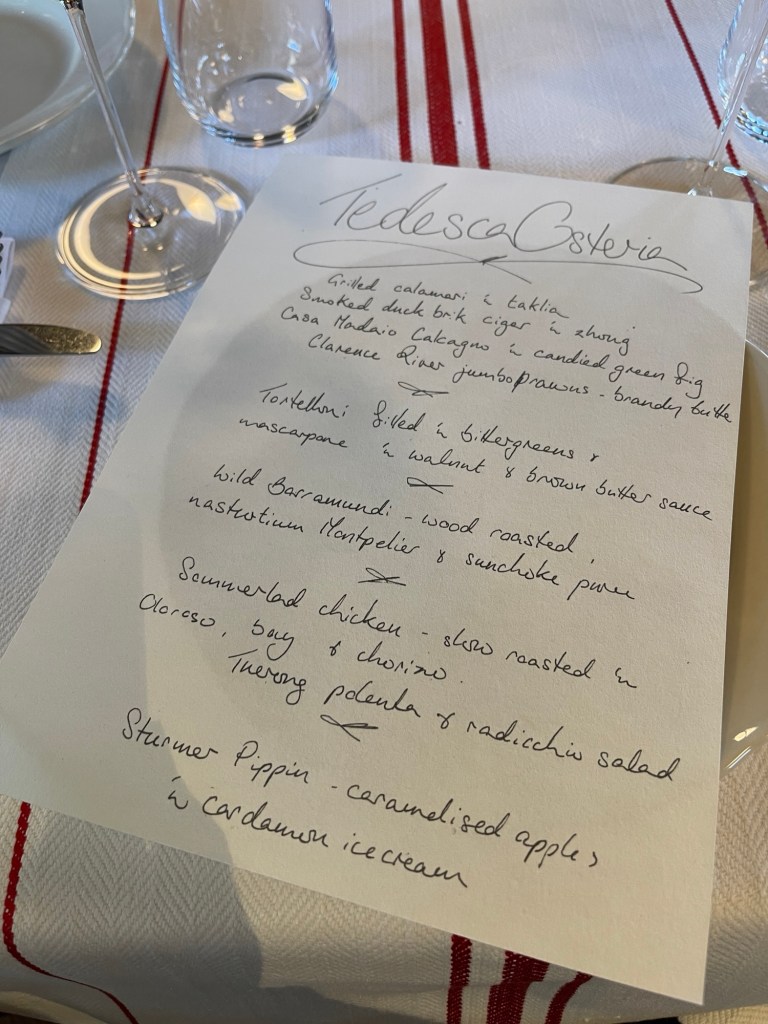 Tedesca Osteria
Grilled calamari 'n taklia
Smoked duck brik cigar 'n zhoug
Casa Madaio Calcagno 'n candied green fig
Clarence River jumbo prawns - brandy butte
Tortelloni filled 'n bittergreens &
mascarpone 'n walnut & brown butter sauce
Wild Barramundi - wood roasted,
nasturtium Montpelier & sunchoke puree
Sommerlad chicken - slow roasted 'n
Oloroso, bay & chorizo.
Tuerong polenta & radicchio salad
Sturmer Pippin - caramelised apples
'n cardamon icecream